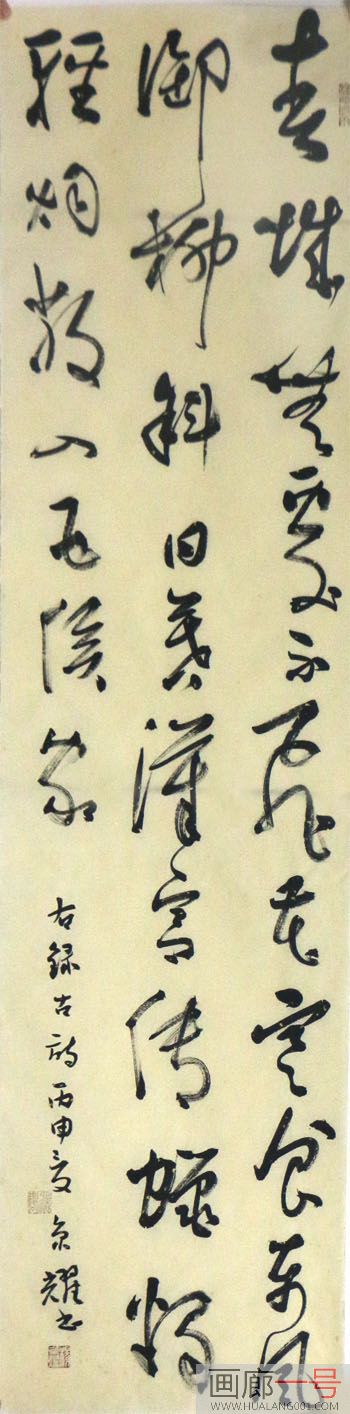 春城無處不飛花寒食東風
御柳斜日暮漢宮傳蠟燭
輕烟散入五侯家
右録古詩丙申夏耀书
画廊一号
WWW.HUALANG001.COM